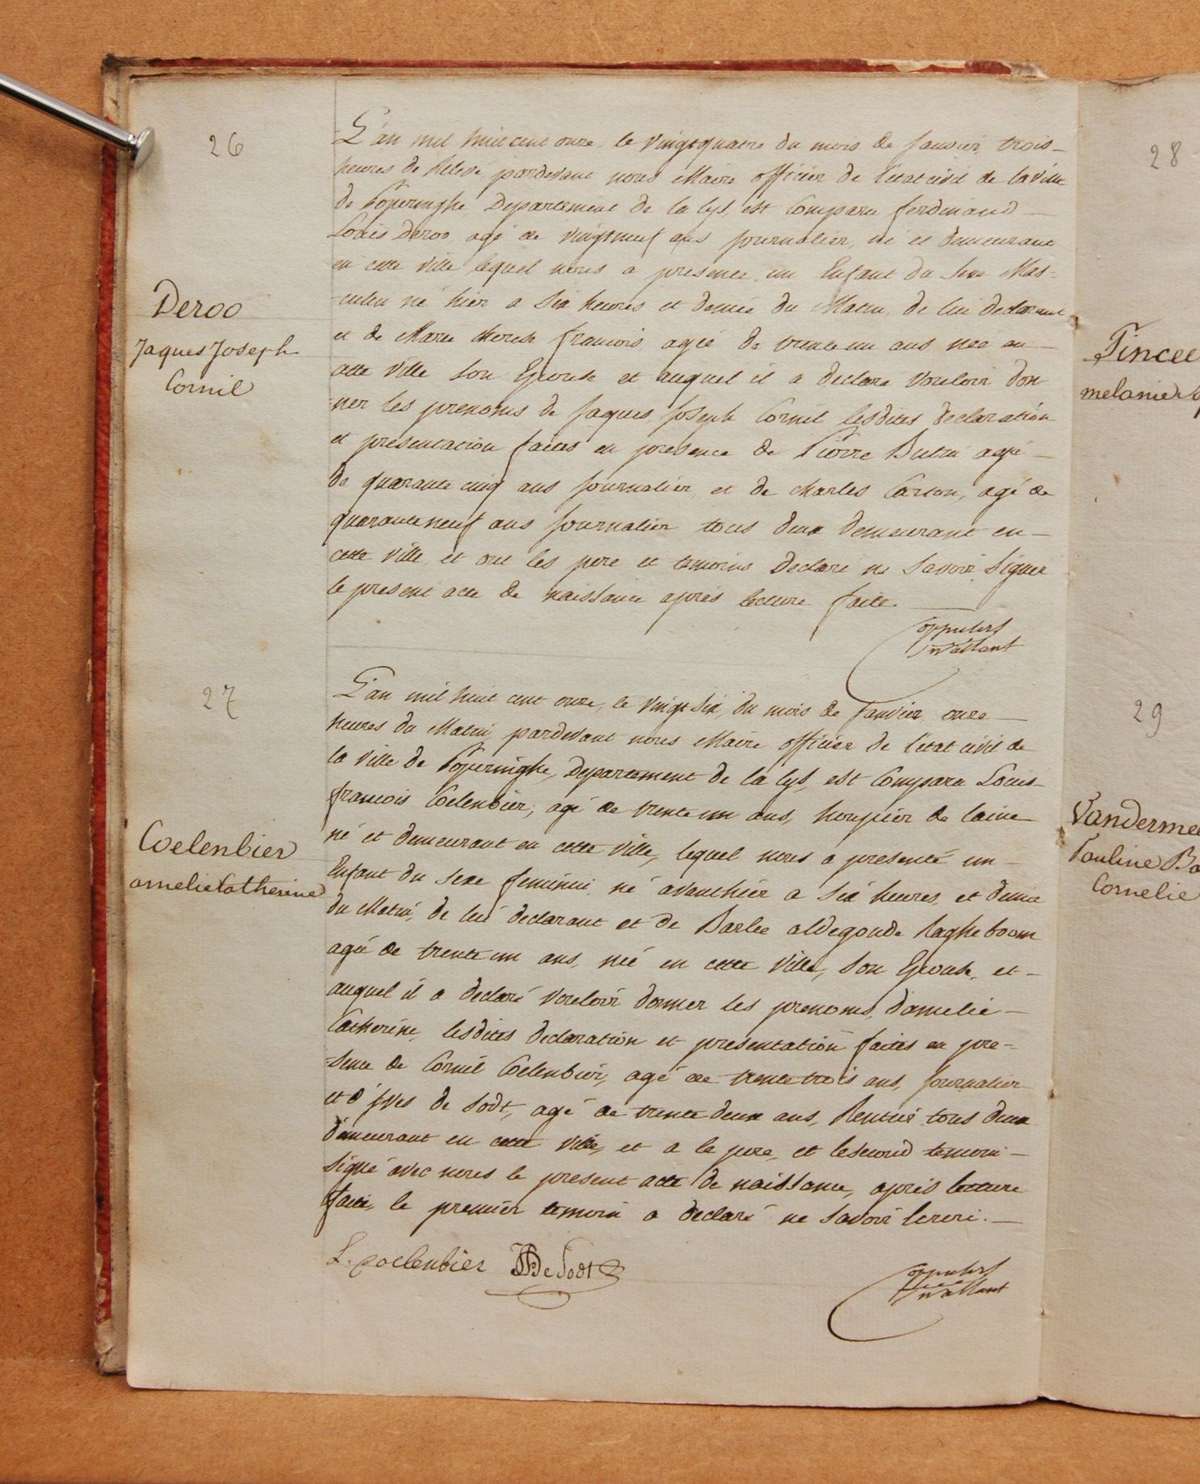 26
Deroo
Jaques Joseph
Cornil
L'an mil huit cent onze, le vingt quatre du mois de Janvier, trois
heures de pardevant nous Maire officier de l'etat civil de la ville
de Poperinghe Departement de la Lys, est comparu ferdinand
Louis Deroo, agé de vingtneuf ans journalier, né et demeurant
en cette ville lequel nous a presenté un Enfant du Sexe Mas-
culin né hier a Six heures et demie du Matin, de lui declarant
et de Marie therese francois agée de trente un ans née en
cette ville Son Epouse et auquel il a declaré vouloir don
ner les prenoms de Jaques Joseph Cornil lesdites declaration
et presentation faites en presence de Pierre agé
de quarante cinq ans journalier et de Charles Carton, agé de
quaranteneuf ans journalier tous deux demeurant en
cette ville, et ont les pere et temoins declaré ne Savoir Signer
le present acte de naissance aprés lecture faite.
27
Coelenbier
amelie Catherine
L'an mil huit cent onze, le vingt Six, du mois de Janvier onze
heures du Matin, pardevant nous Maire officier de l'etat civil de
la ville de Poperinghe, Departement de la Lys, est Comparu Louis
francois Coelenbier, agé de trente un ans, de laine
né et demeurant en cette ville, lequel nous a presenté un
Enfant du Sexe feminin né avanthier a Six heures, et demie
du Matin, de lui declarant et de Barbe aldegonde Ragheboom
agée de trente un ans, née en cette ville, Son Epouse, et
auquel il a declaré vouloir donner les prenoms, d'amelie
Catherine, lesdites declaration et presentation faites en pre-
-sence de Cornil Coelenbier, agé de trente trois ans, journalier
et d'yves de Sodt, agé de trente deux ans, Rentier tous deux
demeurant en cette ville, et a le pere, et le second temoin
signé avec nous le present acte de naissance, aprés lecture
faite, le premier temoin a declaré ne Savoir Ecrire.
L. Coelenbier De Sodt
28
Tincee
melanie
29
Vanderme
Pauline Ba
Cornelie